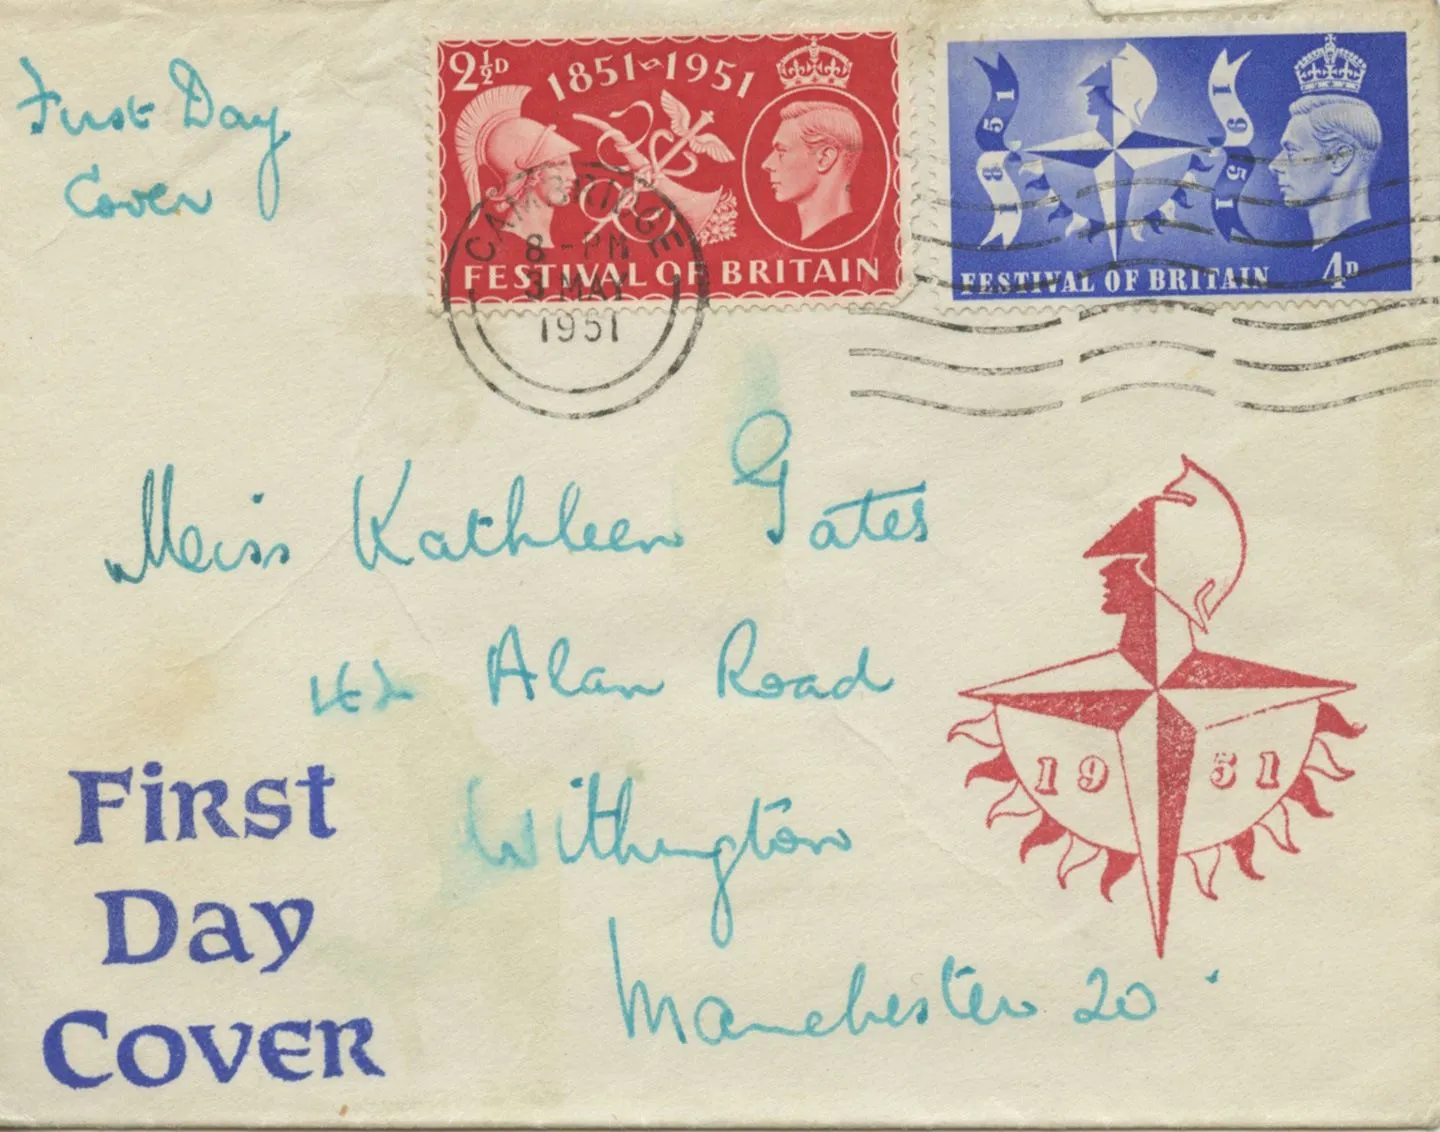 First Day
Cover
2½D
1851-1951
FESTIVAL OF BRITAIN
1851
1951
FESTIVAL OF BRITAIN 4D
CAMBRIDGE
8 - PM
3 MAY
1951
Miss Kathleen Gates
42 Alan Road
Withington
Manchester 20
FIRST
DAY
COVER
1951